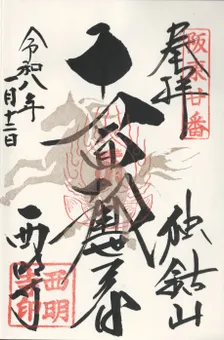 阪東廿番
奉拝
独鈷山
令和八年
一月十二日
西明寺
西明
寺印